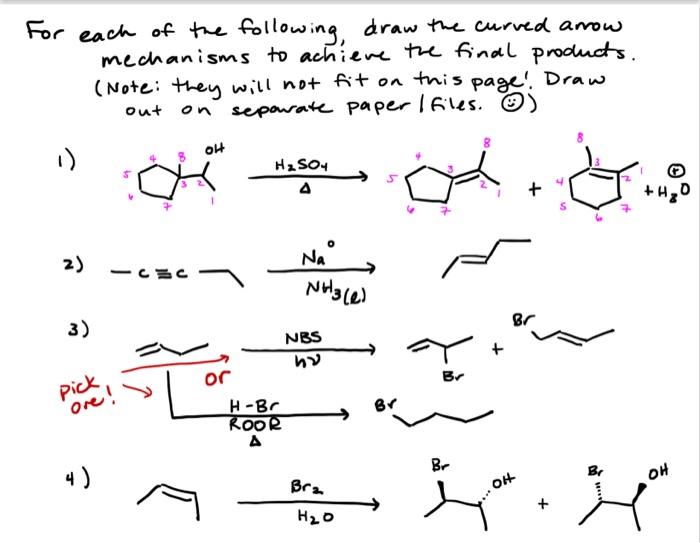 For each of the following, draw the curved arrow
mechanisms to achieve the final products.
(Note: they will not fit on this page! Draw
out on separate paper/files. ☺)
1) OH 8 4 5 3 2 6 7 1 H₂SO₄ Δ 8 4 3 5 2 1 6 7 + 8 3 1 4 2 5 7 6 + H₃O ⊕
2) — C ≡ C Na° NH₃(l)
3) NBS hν Br + Br
pick one! or
H-Br ROOR Δ Br
4) Br₂ H₂O Br OH + Br OH